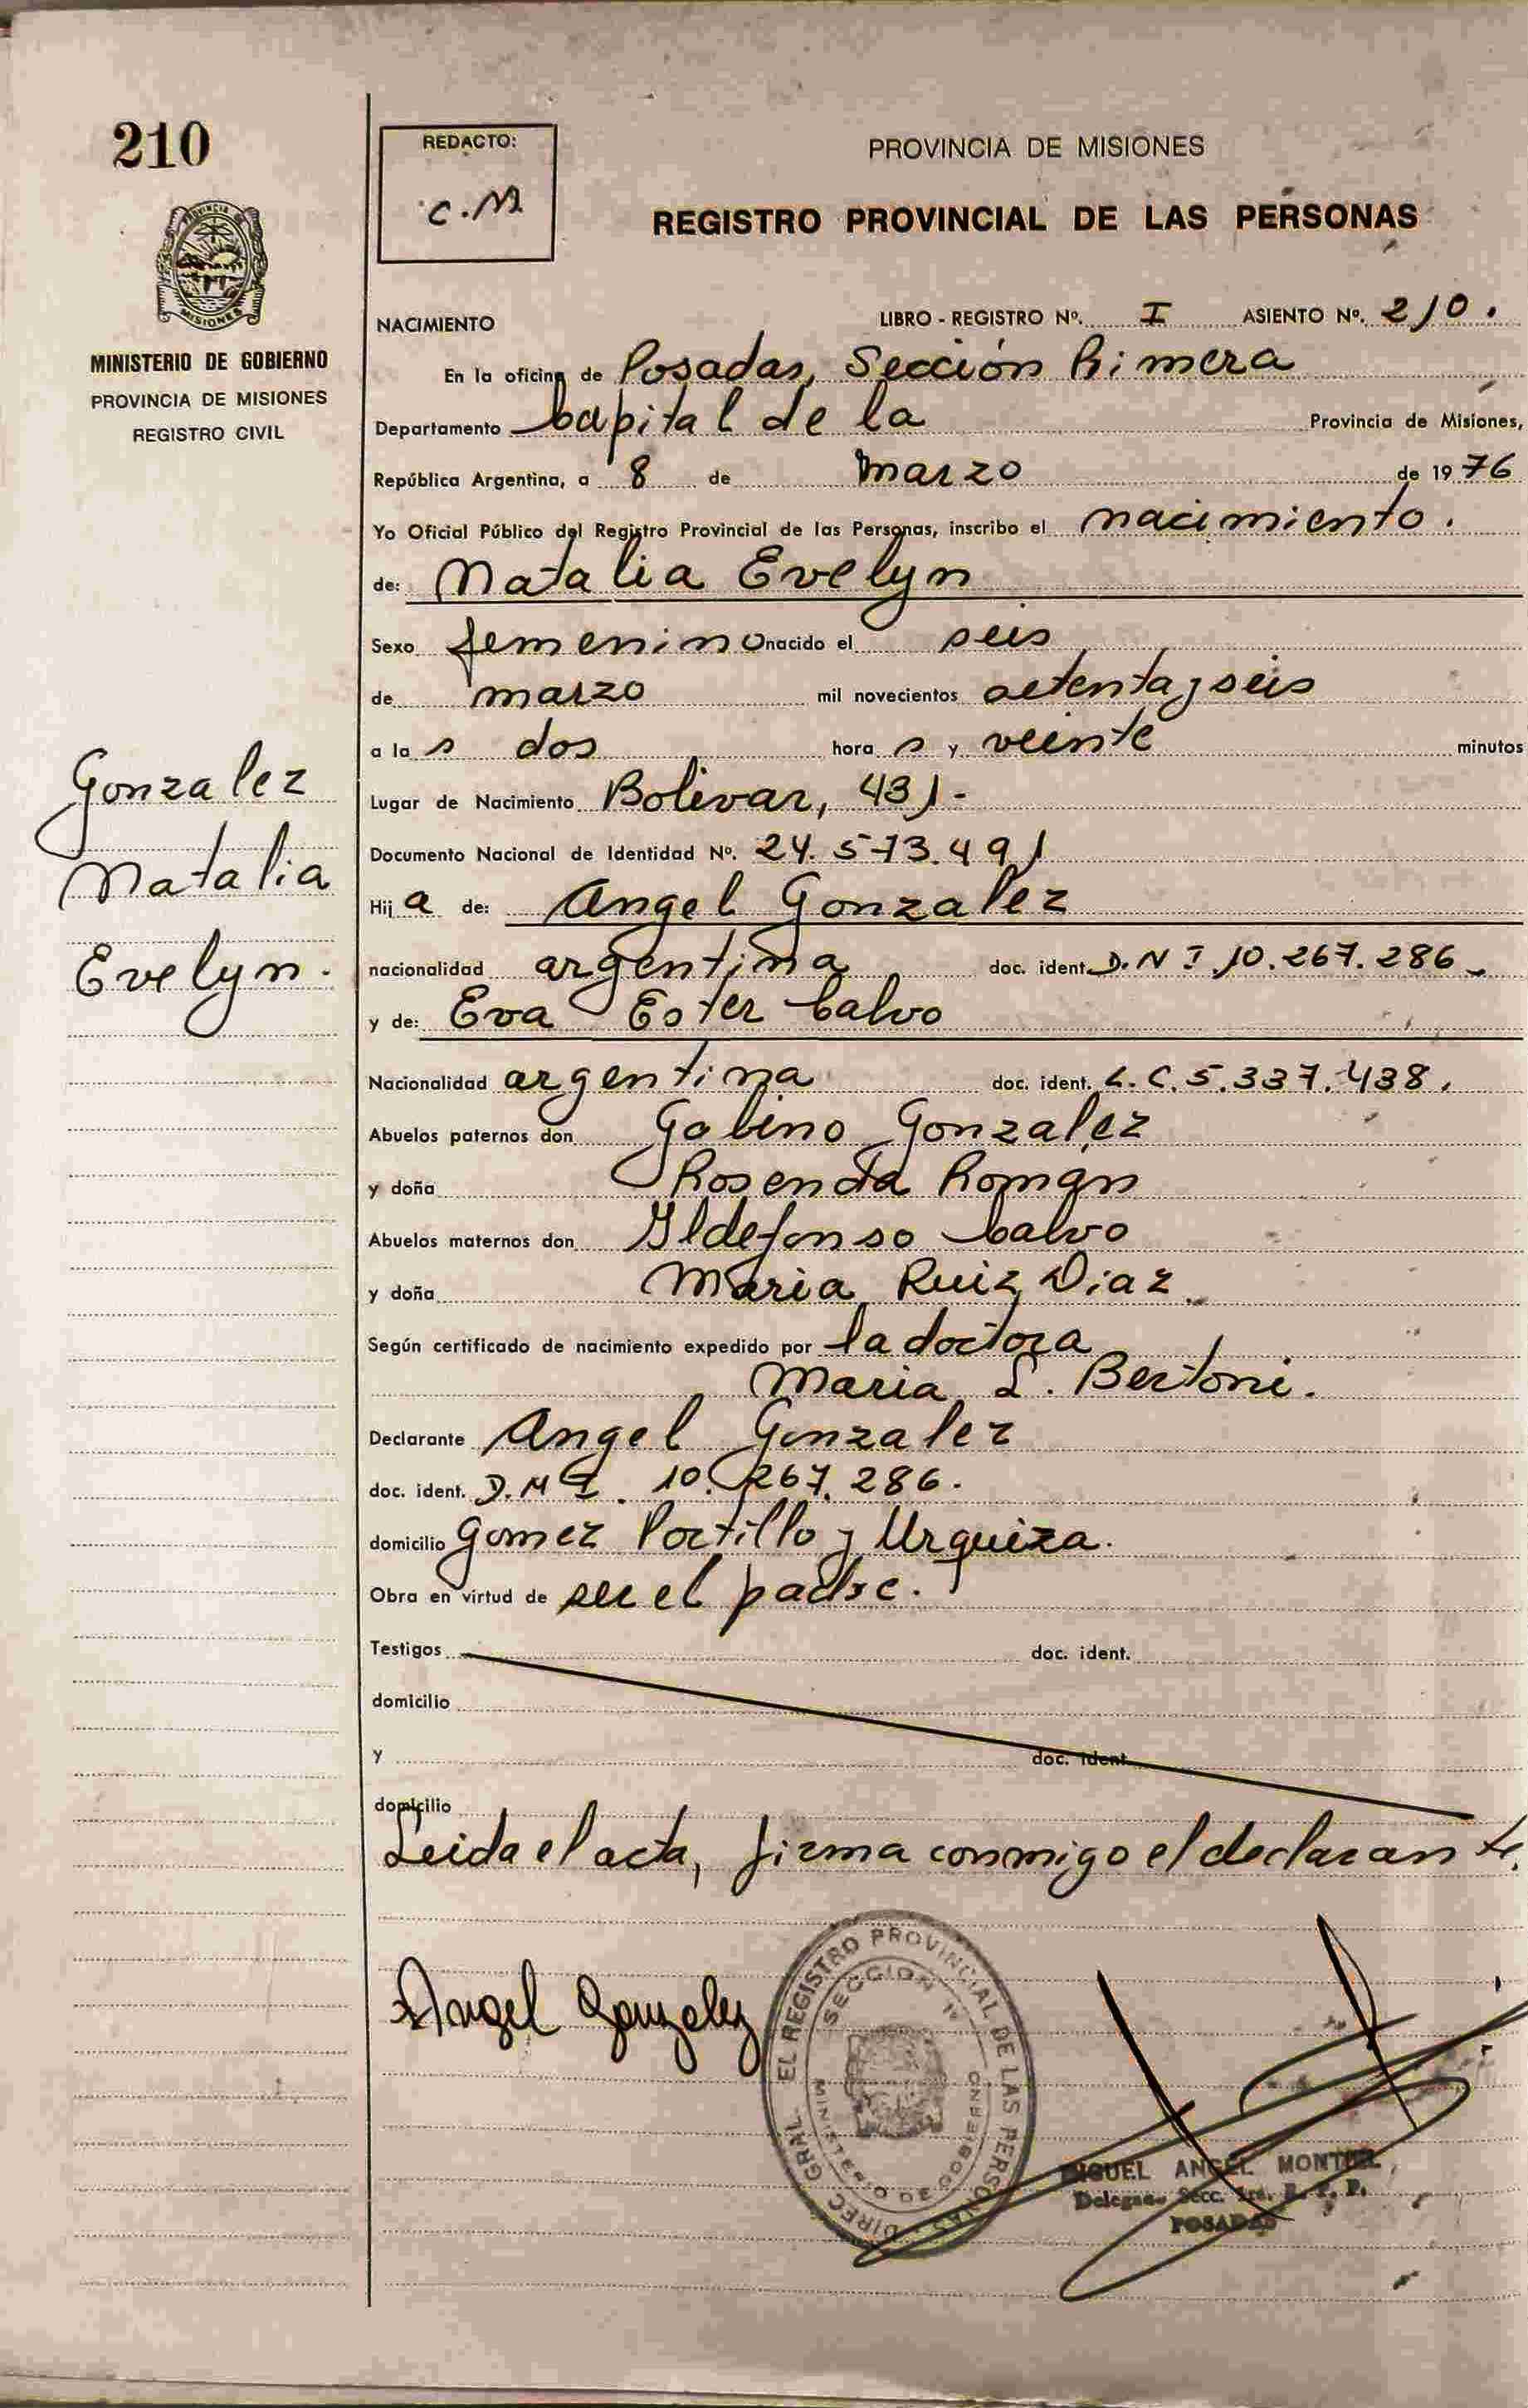 210
REDACTO:
C.M
PROVINCIA DE MISIONES
REGISTRO PROVINCIAL DE LAS PERSONAS
PROVINCIA
MISIONES
MINISTERIO DE GOBIERNO
PROVINCIA DE MISIONES
REGISTRO CIVIL
NACIMIENTO LIBRO - REGISTRO Nº. I ASIENTO Nº. 210.
En la oficina de Posadas, Sección Primera
Departamento Capital de la Provincia de Misiones,
República Argentina, a 8 de marzo de 1976
Yo Oficial Público del Registro Provincial de las Personas, inscribo el nacimiento.
de: Natalia Evelyn
Sexo femenino nacido el seis
de marzo mil novecientos setenta y seis
a las dos horas y veinte minutos
Lugar de Nacimiento Bolivar, 431-
Documento Nacional de Identidad Nº. 24.573.491
Hija de: Angel Gonzalez
nacionalidad argentina doc. ident. D.N I 10.267.286-
y de: Eva Ester Calvo
Nacionalidad argentina doc. ident. L.C. 5.337.438.
Abuelos paternos don Galino Gonzalez
y doña Rosenda Roman
Abuelos maternos don Ildefonso Calvo
y doña Maria Ruiz Diaz
Según certificado de nacimiento expedido por la doctora
Maria L. Bertoni.
Declarante Angel Gonzalez
doc. ident. D.N I. 10.267.286.
domicilio Gomez Portillo y Urquiza.
Obra en virtud de ser el padre.
Testigos doc. ident.
domicilio
y doc. ident.
domicilio
Leida el acta, firma conmigo el declarante.
Gonzalez
Natalia
Evelyn.
Angel Gonzalez
DIREC. GRAL. EL REGISTRO PROVINCIAL DE LAS PERSONAS
SECCION 1ª
MINISTERIO DE GOBIERNO
MIGUEL ANGEL MONTIEL
Delegado Secc. 1ra. R. P. P.
POSADAS